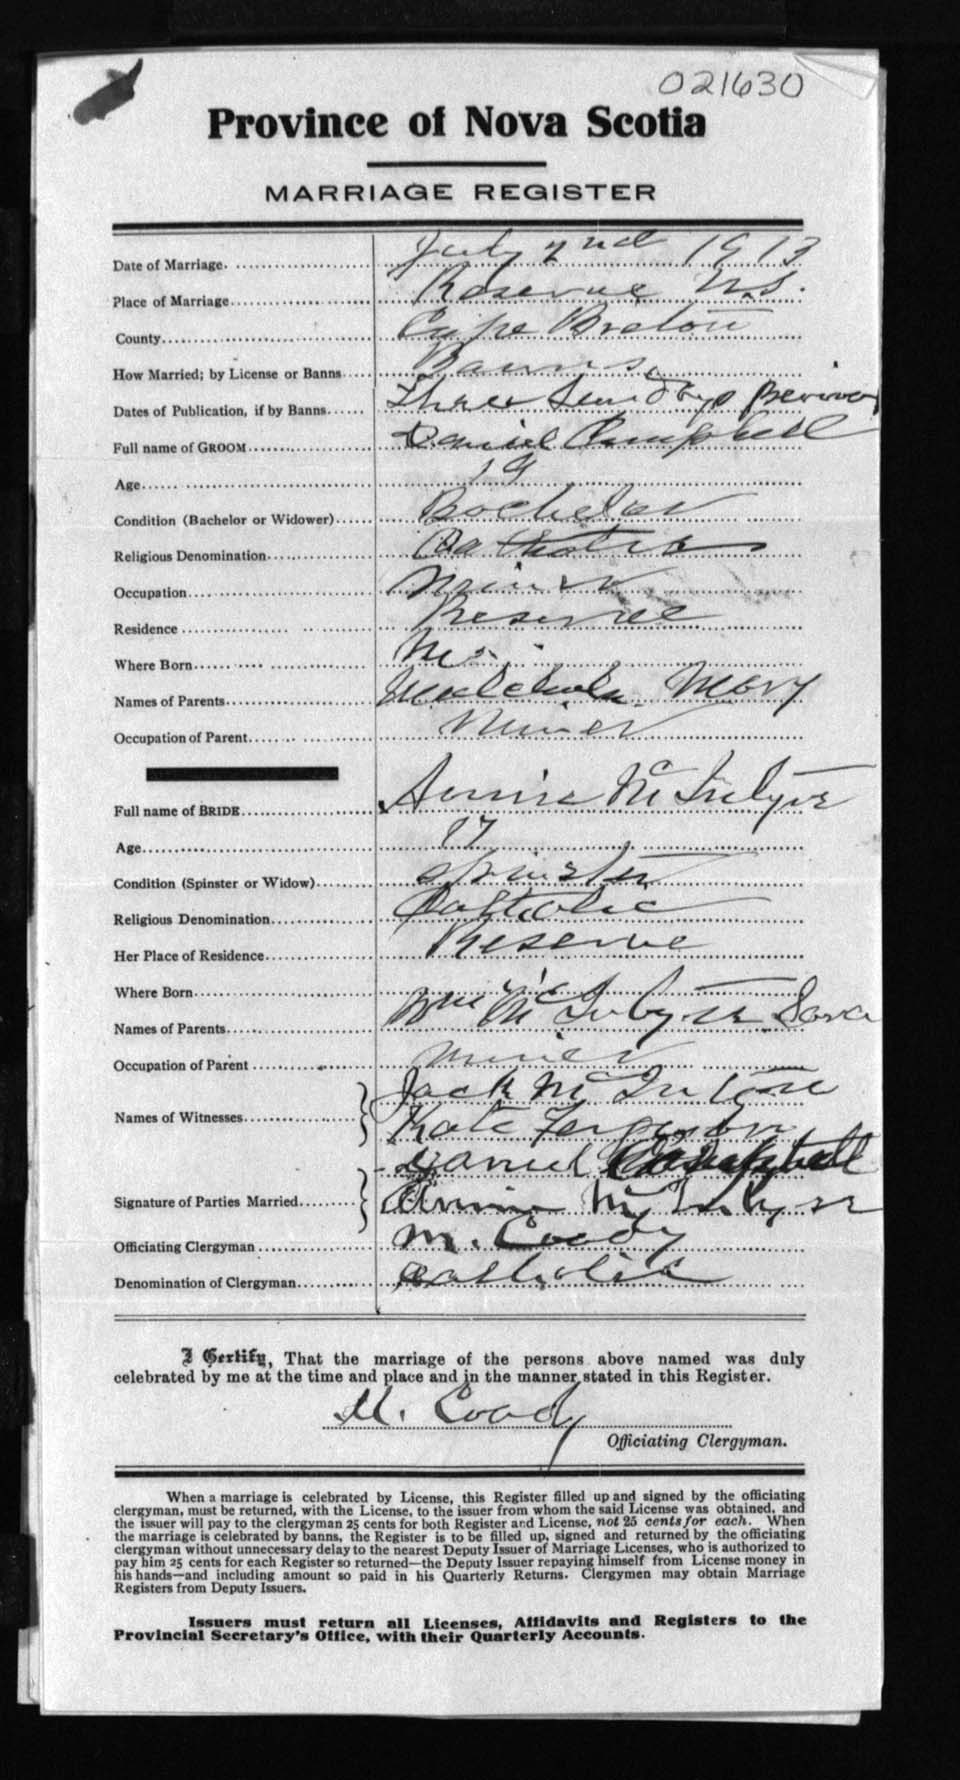 021630
Province of Nova Scotia
MARRIAGE REGISTER
Date of Marriage. July 2nd 1913
Place of Marriage Reserve N.S.
County Cape Breton
How Married; by License or Banns Banns
Dates of Publication, if by Banns Three Sundays
Full name of GROOM Daniel Campbell
Age 19
Condition (Bachelor or Widower) Bachelor
Religious Denomination Catholic
Occupation Miner
Residence Reserve
Where Born
Names of Parents Malcholm Mary
Occupation of Parent Miner
Full name of BRIDE Annie Mc Intyre
Age 17
Condition (Spinster or Widow) Spinster
Religious Denomination Catholic
Her Place of Residence Reserve
Where Born "
Names of Parents Wm Mc Intyre Sara
Occupation of Parent Miner
Names of Witnesses Jack Mc Intyre
Kate Ferguson
Daniel Campbell
Signature of Parties Married Annie Mc Intyre
Officiating Clergyman M. Coady
Denomination of Clergyman Catholic
I Certify, That the marriage of the persons above named was duly
celebrated by me at the time and place and in the manner stated in this Register.
M. Coady
Officiating Clergyman.
When a marriage is celebrated by License, this Register filled up and signed by the officiating
clergyman, must be returned, with the License, to the issuer from whom the said License was obtained, and
the issuer will pay to the clergyman 25 cents for both Register and License, not 25 cents for each. When
the marriage is celebrated by banns, the Register is to be filled up, signed and returned by the officiating
clergyman without unnecessary delay to the nearest Deputy Issuer of Marriage Licenses, who is authorized to
pay him 25 cents for each Register so returned—the Deputy Issuer repaying himself from License money in
his hands—and including amount so paid in his Quarterly Returns. Clergymen may obtain Marriage
Registers from Deputy Issuers.
Issuers must return all Licenses, Affidavits and Registers to the
Provincial Secretary's Office, with their Quarterly Accounts.